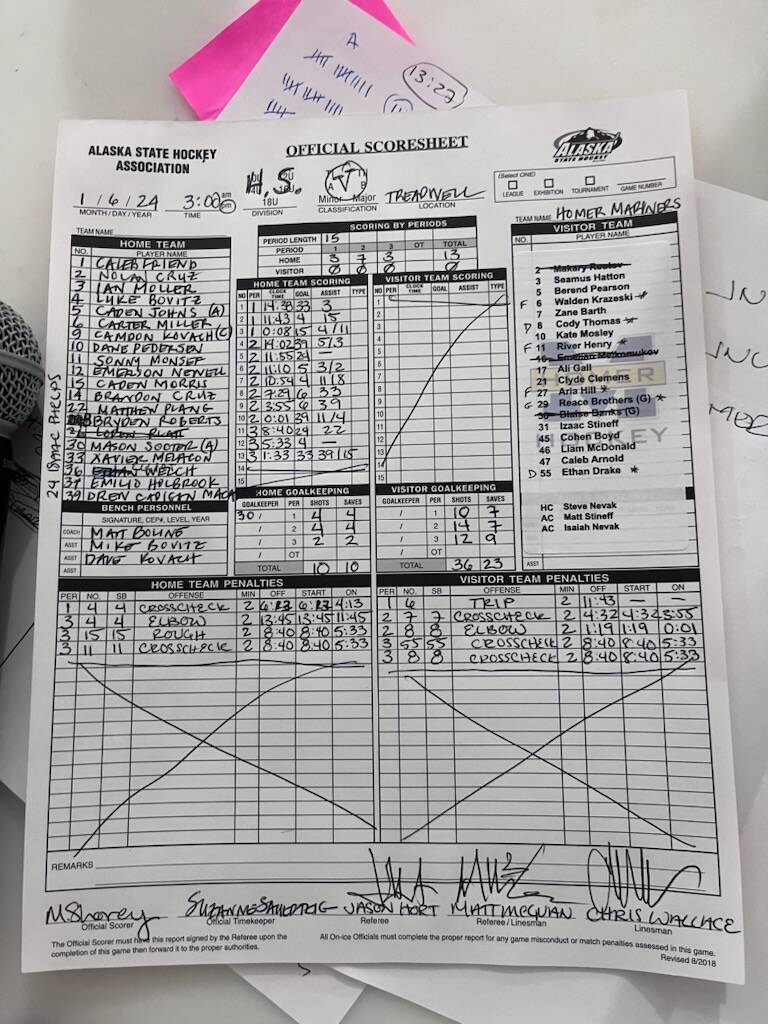 A
13:27
ALASKA STATE HOCKEY
ASSOCIATION
OFFICIAL SCORESHEET
ALASKA
STATE HOCKEY
1/6/24
MONTH/DAY/YEAR
3:00 am pm
TIME
H.S.
18U
DIVISION
Minor Major
CLASSIFICATION
TREADWELL
LOCATION
(Select ONE)
LEAGUE EXHIBITION TOURNAMENT GAME NUMBER
TEAM NAME
TEAM NAME HOMER MARINERS
SCORING BY PERIODS
PERIOD LENGTH 15
PERIOD 1 2 3 OT TOTAL
HOME 3 7 3 13
VISITOR 0 0 0 0
HOME TEAM
NO. PLAYER NAME
1 CALEB FRIEND
2 NOLAN CRUZ
3 IAN MOLLER
4 LUKE BOVITZ
5 CADEN JOHNS (A)
6 CARTER MILLER
9 CAMDON KOVACH (C)
10 DANE PEDERSEN
11 SONNY MONSEF
12 EMERSON NEWELL
15 CADEN MORRIS
14 BRANDON CRUZ
22 MATTHEW PLANG
BRYDEN ROBERTS
LOREN PLATT
30 MASON SOOTER (A)
33 XAVIER MELANCON
36 ETHAN WELCH
37 EMILIO HOLBROOK
39 DREW CADIGAN
24 ISAAC PHELPS
BENCH PERSONNEL
SIGNATURE, CEP#, LEVEL, YEAR
COACH MATT BOLINE
ASST MIKE BOVITZ
ASST DAVE KOVACH
HOME TEAM SCORING
NO PER CLOCK TIME GOAL ASSIST TYPE
1 1 14:33 33 3
2 1 11:43 4 15
3 1 0:08 15 4/11
4 2 14:02 39 5/3
5 2 11:55 24 –
6 2 11:10 5 3/2
7 2 10:54 4 11/8
8 2 7:29 6 33
9 2 3:55 6 39
10 2 0:01 39 11/4
11 3 8:40 24 22
12 3 5:33 4 –
13 3 1:33 33 39/15
14
15
VISITOR TEAM SCORING
NO PER CLOCK TIME GOAL ASSIST TYPE
HOME GOALKEEPING
GOALKEEPER PER SHOTS SAVES
30 / 1 4 4
/ 2 4 4
/ 3 2 2
/ OT
TOTAL 10 10
VISITOR GOALKEEPING
GOALKEEPER PER SHOTS SAVES
/ 1 10 7
/ 2 14 7
/ 3 12 9
/ OT
TOTAL 36 23
VISITOR TEAM
NO. PLAYER NAME
3 Seamus Hatton
5 Berend Pearson
F 6 Walden Krazeski *
7 Zane Barth
D 8 Cody Thomas *
10 Kate Mosley
F 11 River Henry *
17 Ali Gall
21 Clyde Clemens
F 27 Aria Hill *
G 29 Reace Brothers (G) *
30 Blaise Banks (G)
31 Izaac Stineff
45 Cohen Boyd
46 Liam McDonald
47 Caleb Arnold
D 55 Ethan Drake *
HOMER
HOCKEY
HC Steve Nevak
AC Matt Stineff
AC Isaiah Nevak
ASST
HOME TEAM PENALTIES
PER NO. SB OFFENSE MIN OFF START ON
1 4 4 CROSSCHECK 2 6:13 6:13 4:13
3 4 4 ELBOW 2 13:45 13:45 11:45
3 15 15 ROUGH 2 8:40 8:40 5:33
3 11 11 CROSSCHECK 2 8:40 8:40 5:33
VISITOR TEAM PENALTIES
PER NO. SB OFFENSE MIN OFF START ON
1 6 TRIP 2 11:43 – –
2 7 7 CROSSCHECK 2 4:32 4:32 3:55
2 8 8 ELBOW 2 1:19 1:19 0:01
3 55 55 CROSSCHECK 2 8:40 8:40 5:33
3 8 8 CROSSCHECK 2 8:40 8:40 5:33
REMARKS
M Storey
Official Scorer
Official Timekeeper
JASON HORT
Referee
Referee / Linesman
CHRIS WALLACE
Linesman
The Official Scorer must have this report signed by the Referee upon the
completion of this game then forward it to the proper authorities.
All On-ice Officials must complete the proper report for any game misconduct or match penalties assessed in this game.
Revised 8/2018